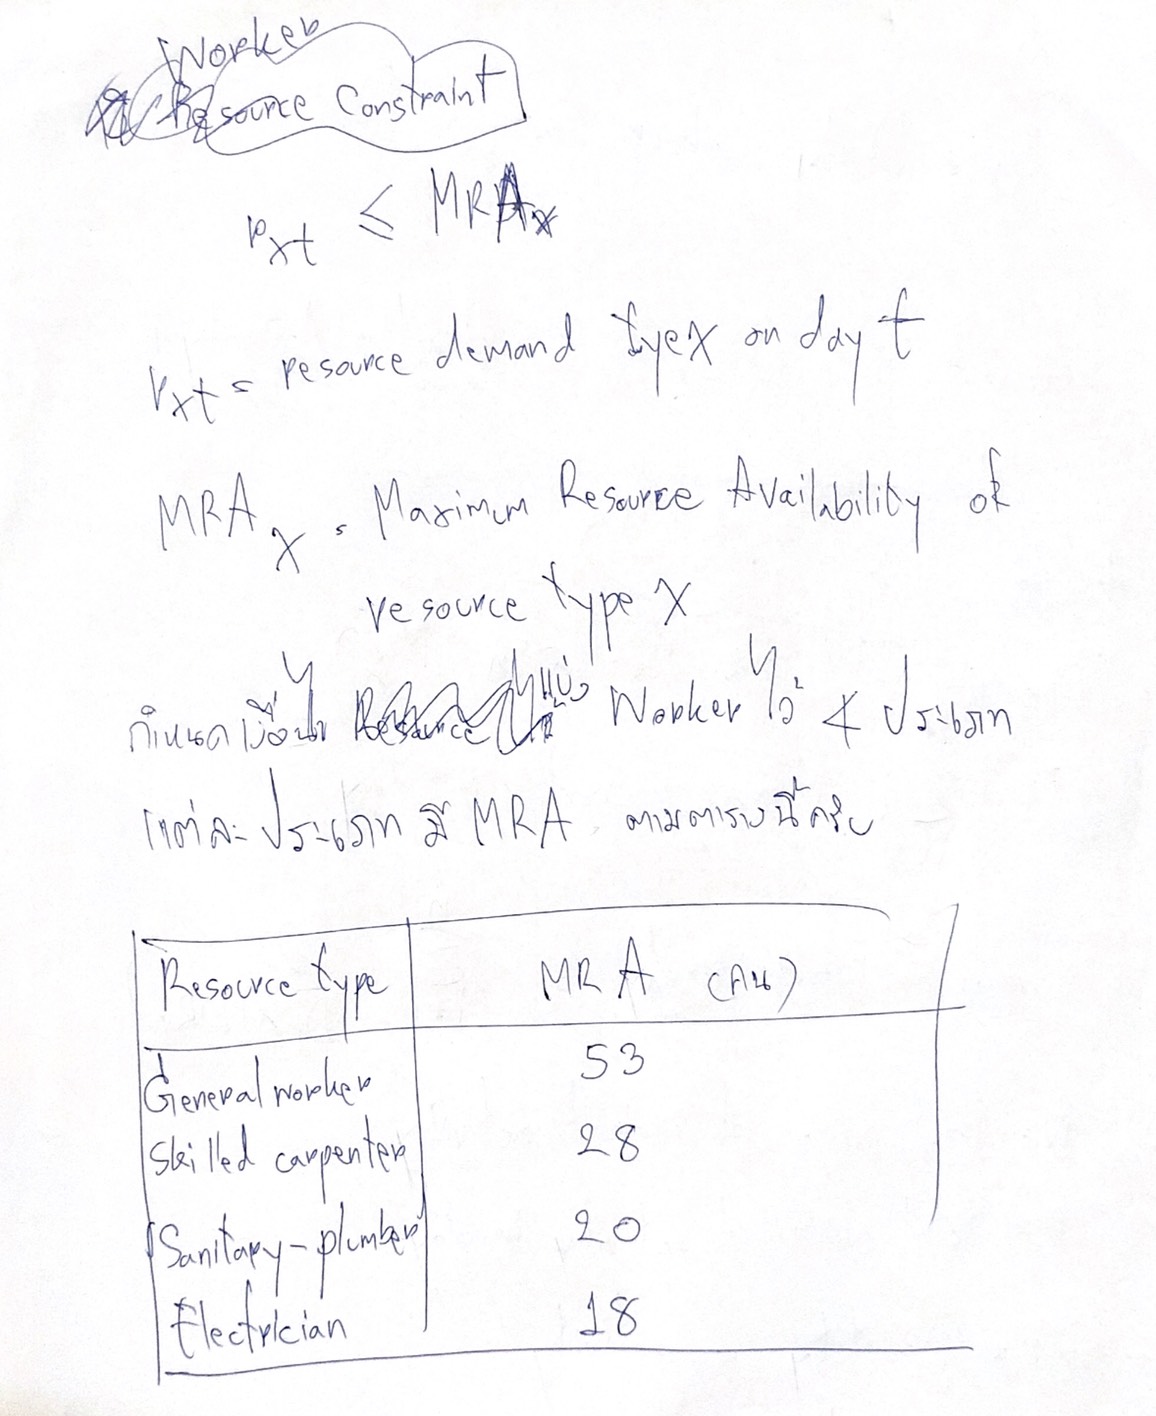 Worker
Resource Constraint
rxt ≤ MRAx
rxt = resource demand tyex on day t
MRAx = Maximum Resource Availability of
resource type x
กำหนดเงื่อนไข แบ่ง Worker ไว้ 4 ประเภท
แต่ละประเภท มี MRA ตามตารางนี้ครับ
Resource type MRA (คน)
General worker 53
Skilled carpenter 28
Sanitary-plumber 20
Electrician 18